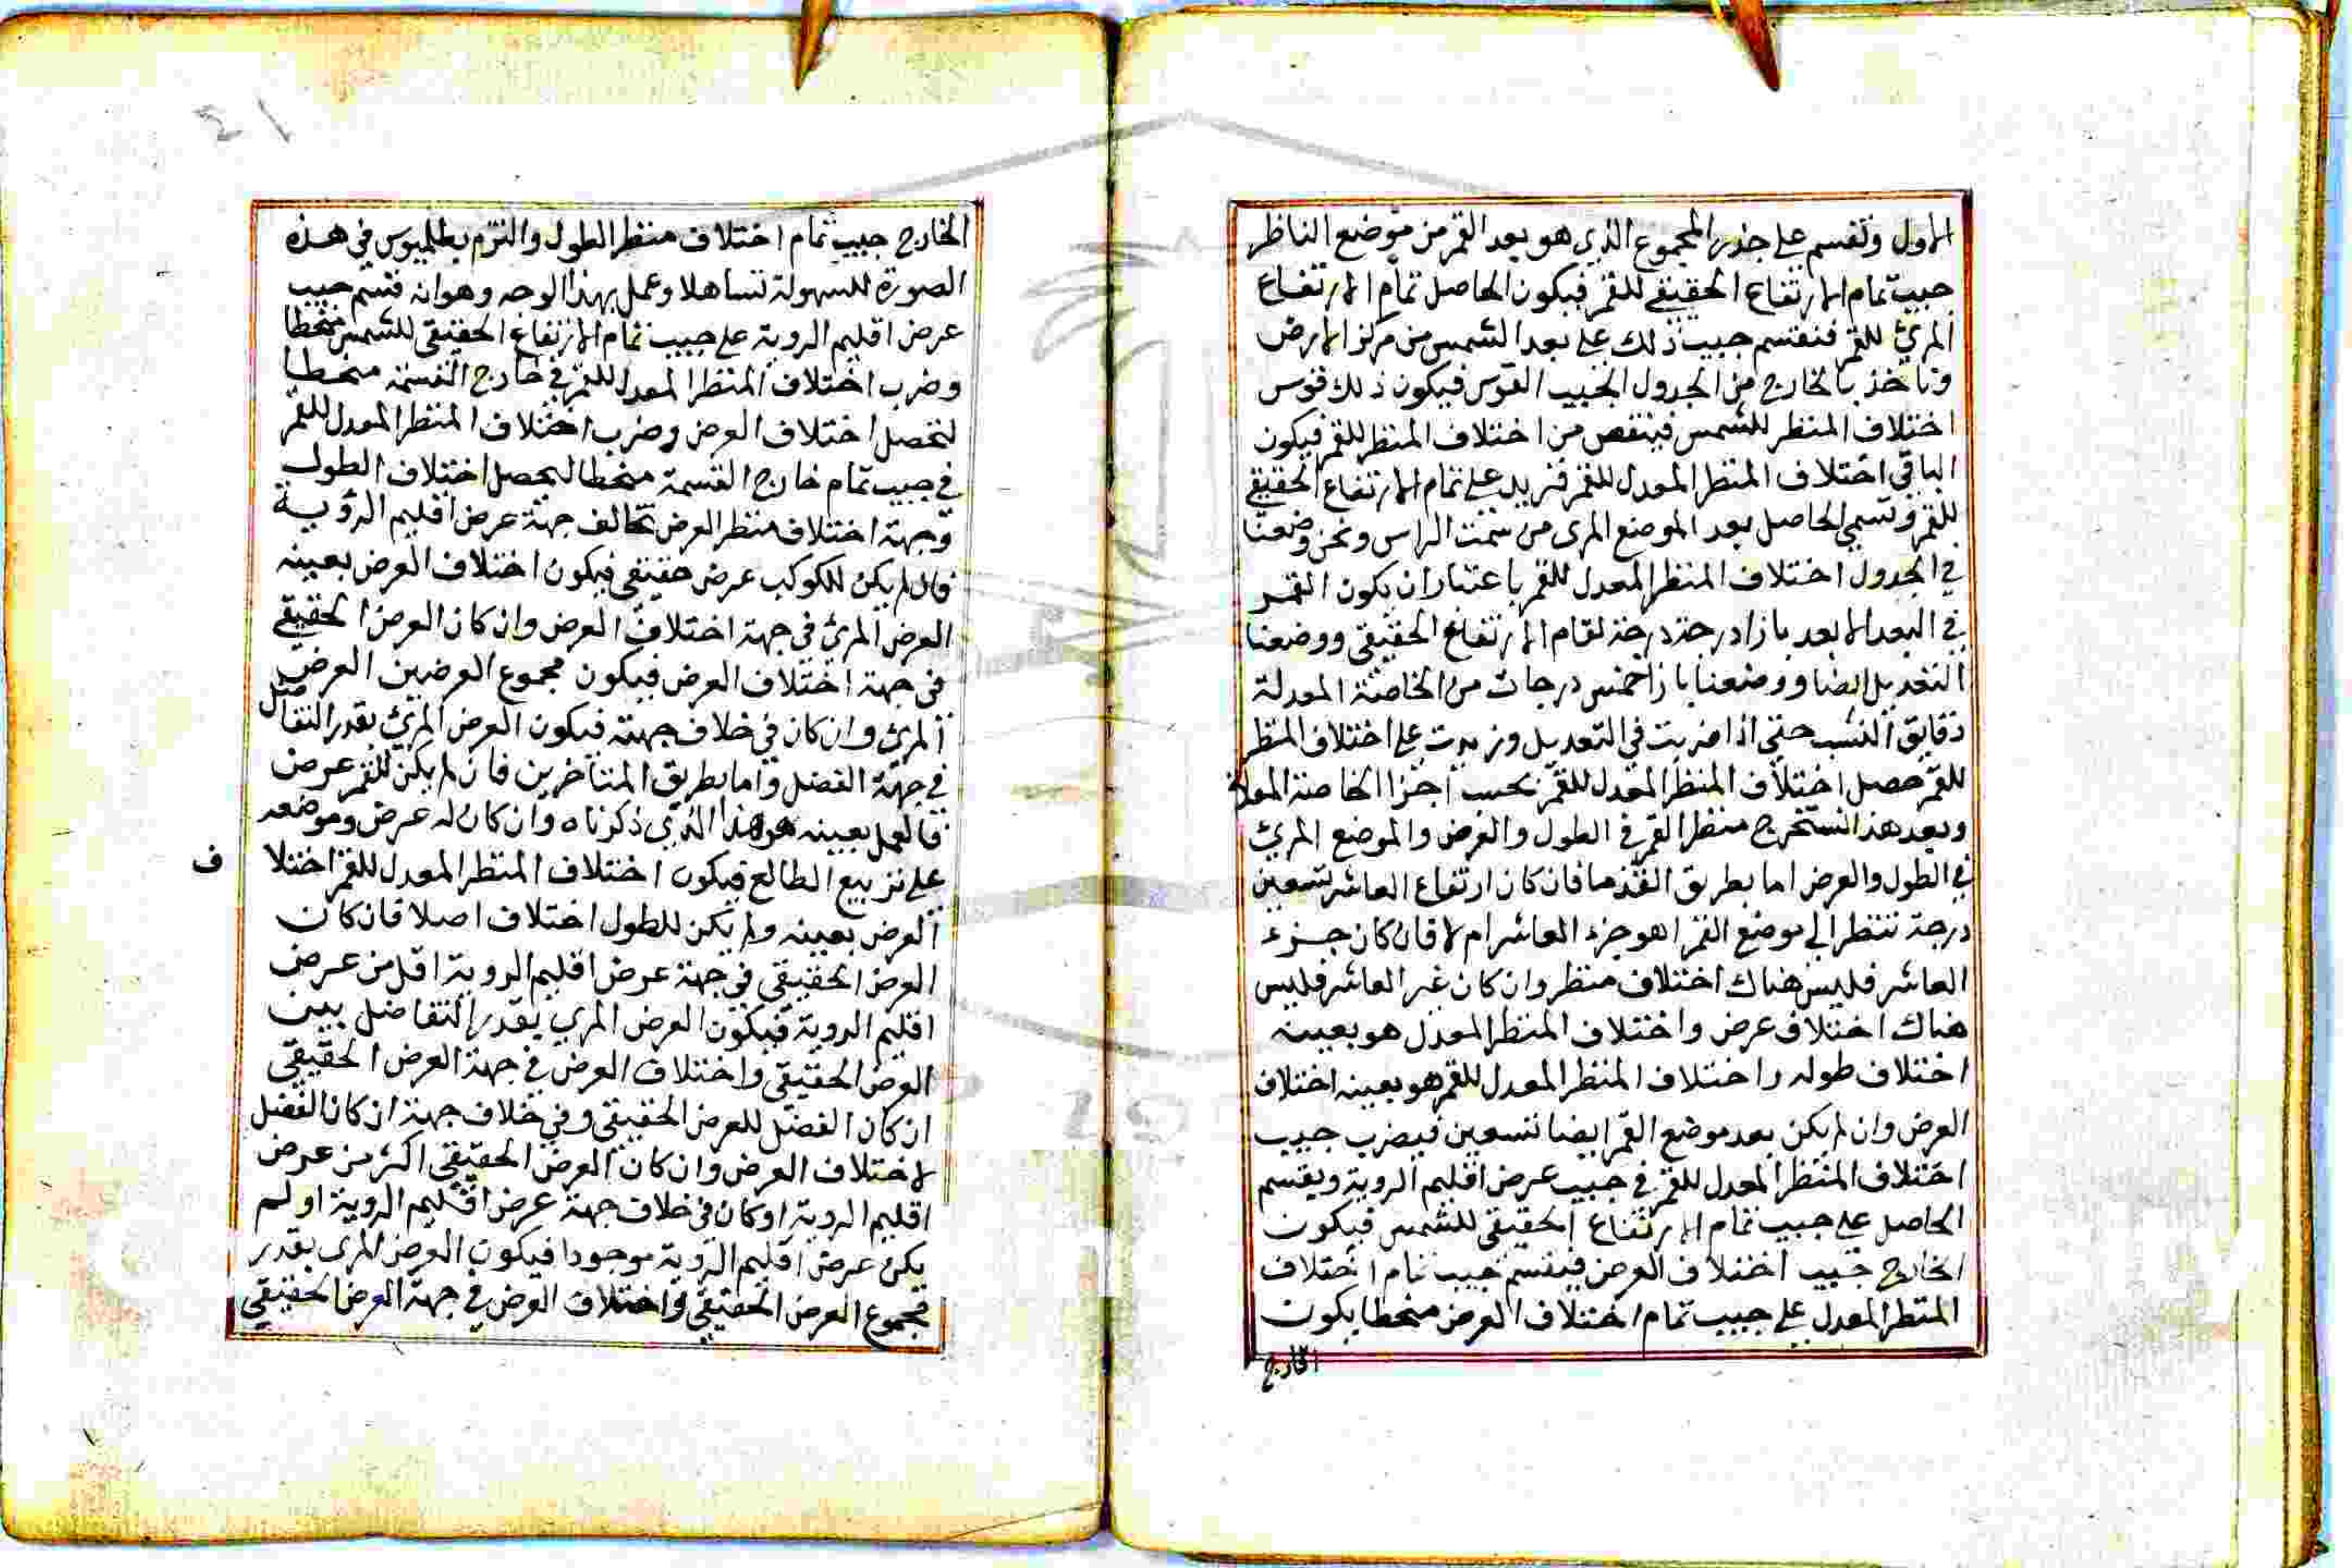 الاول ونقسم على جذر المجموع الذي هو بعد القمر من موضع الناظر
جيب تمام الارتفاع الحقيقي للقمر فيكون الحاصل تمام الارتفاع
المرئ للقمر فنقسم جيب ذلك على بعد الشمس من مركز الارض
وناخذ بالخارج من الجدول الجيب القوس فيكون ذلك قوس
اختلاف المنظر للشمس فينقص من اختلاف المنظر للقمر فيكون
الباقي اختلاف المنظر المعدل للقمر فنزيد على تمام الارتفاع الحقيقي
للقمر ونسمي الحاصل بعد الموضع المرى من سمت الراس ونحن وضعنا
في الجدول اختلاف المنظر المعدل للقمر باعتبار ان يكون القمر
في البعد الابعد بازاء درجة درجة لتمام الارتفاع الحقيقي ووضعنا
التعديل ايضا ووضعنا بازا خمس درجات من الخاصة المعدلة
دقايق النسب حتى اذا ضربت في التعديل وزيدت على اختلاف المنظر
للقمر حصل اختلاف المنظر المعدل للقمر بحسب اجزا الخاصة المعدلة
وبعد هذا نستخرج منظر القمر في الطول والعرض والموضع المرئ
في الطول والعرض اما بطريق القدما فان كان ارتفاع العاشر تسعين
درجة ننظر الى موضع القمر اهو جزء العاشر ام لا فان كان جزء
العاشر فليس هناك اختلاف منظر وان كان غير العاشر فليس
هناك اختلاف عرض واختلاف المنظر المعدل هو بعينه
اختلاف طوله واختلاف المنظر المعدل للقمر هو بعينه اختلاف
العرض وان لم يكن بعد موضع القمر ايضا تسعين فيضرب جيب
اختلاف المنظر المعدل للقمر في جيب عرض اقليم الروية ويقسم
الحاصل على جيب تمام الارتفاع الحقيقي للشمس فيكون
الخارج جيب اختلاف العرض فينقسم جيب تمام اختلاف
المنظر المعدل على جيب تمام اختلاف العرض منحطا يكون
الخارج
الخارج جيب تمام اختلاف منظر الطول والتزم بطلميوس في هذه
الصورة للسهولة تساهلا وعمل بهذا الوجه وهو انه قسم جيب
عرض اقليم الروية على جيب تمام الارتفاع الحقيقي للشمس منحطا
وضرب اختلاف المنظر المعدل للقمر في خارج القسمة منحطا
لتحصل اختلاف العرض وضرب اختلاف المنظر المعدل للقمر
في جيب تمام خارج القسمة منحطا ليحصل اختلاف الطول
وجهة اختلاف منظر العرض تخالف جهة عرض اقليم الرؤية
فان لم يكن للكوكب عرض حقيقي فيكون اختلاف العرض بعينه
العرض المرئ في جهة اختلاف العرض وان كان العرض الحقيقي
في جهة اختلاف العرض فيكون مجموع العرضين العرض
المرئ وان كان في خلاف جهته فيكون العرض المرئ بقدر التفاضل
في جهة الفضل واما بطريق المتاخرين فان لم يكن للقمر عرض
فالعمل بعينه هو هذا الذي ذكرناه وان كان له عرض وموضعه
على تربيع الطالع فيكون اختلاف المنظر المعدل للقمر اختلا
ف
العرض بعينه ولم يكن للطول اختلاف اصلا فان كان
العرض الحقيقي في جهة عرض اقليم الروية اقل من عرض
اقليم الروية فيكون العرض المري بقدر التفاضل بين
العرض الحقيقي واختلاف العرض في جهة العرض الحقيقي
ان كان الفضل للعرض الحقيقي وفي خلاف جهة ان كان الفضل
لاختلاف العرض وان كان العرض الحقيقي اكثر من عرض
اقليم الروية او كان في خلاف جهة عرض اقليم الروية او لم
يكن عرض اقليم الروية موجودا فيكون العرض المرى بقدر
مجموع العرض الحقيقي واختلاف العرض في جهة العرض الحقيقي